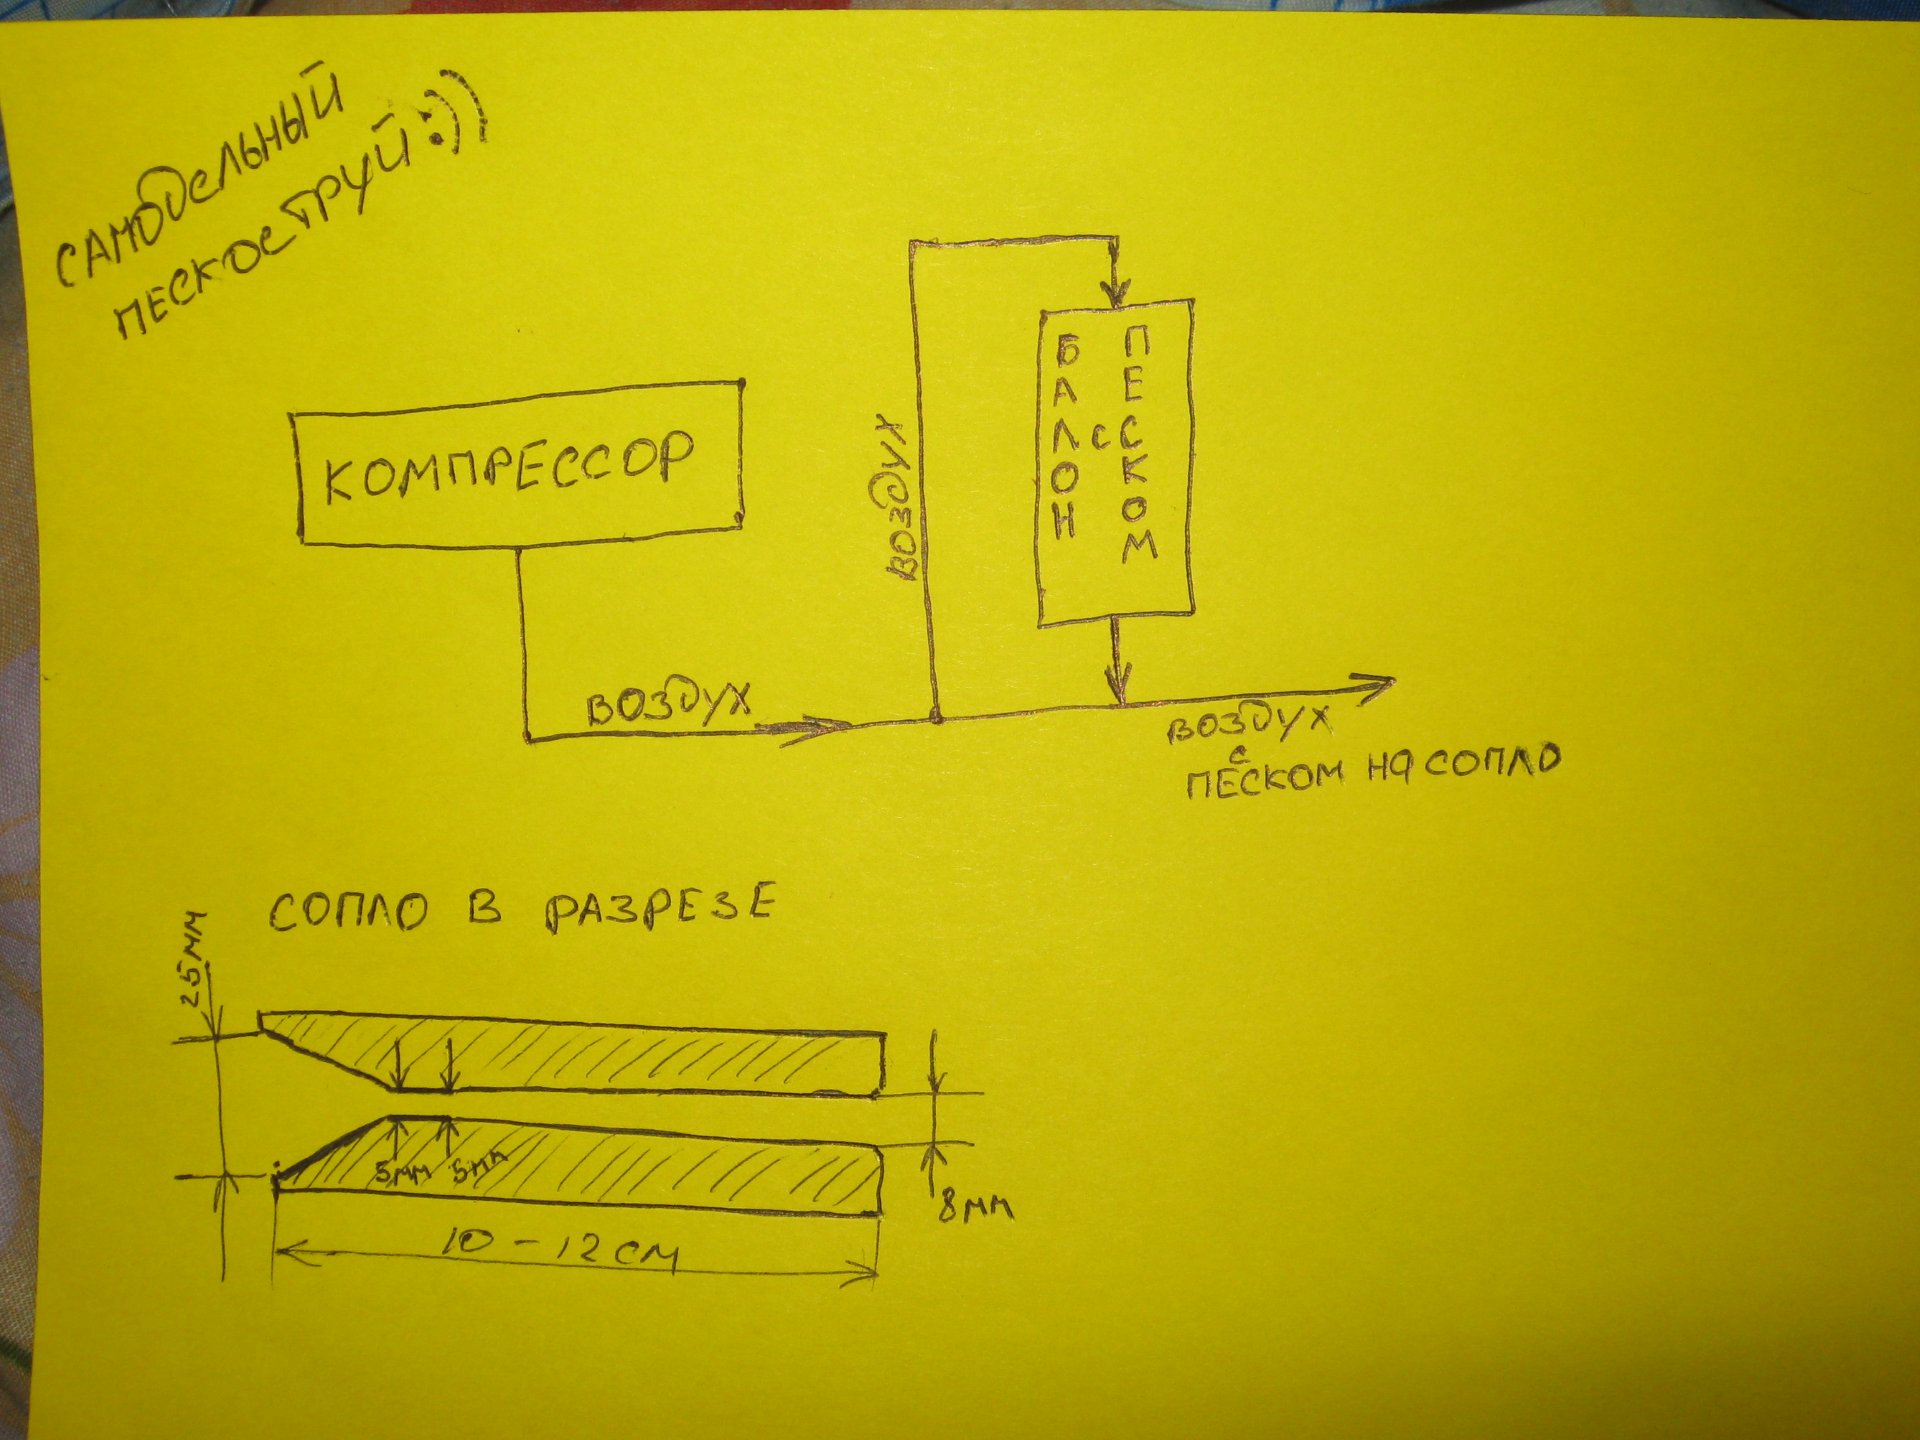 САМОДЕЛЬНЫЙ
ПЕСКОСТРУЙ:))
КОМПРЕССОР
ВОЗДУХ
ВОЗДУХ
БАЛОН
С
ПЕСКОМ
ВОЗДУХ
С
ПЕСКОМ НА СОПЛО
СОПЛО В РАЗРЕЗЕ
25мм
5мм 5мм
8мм
10-12см